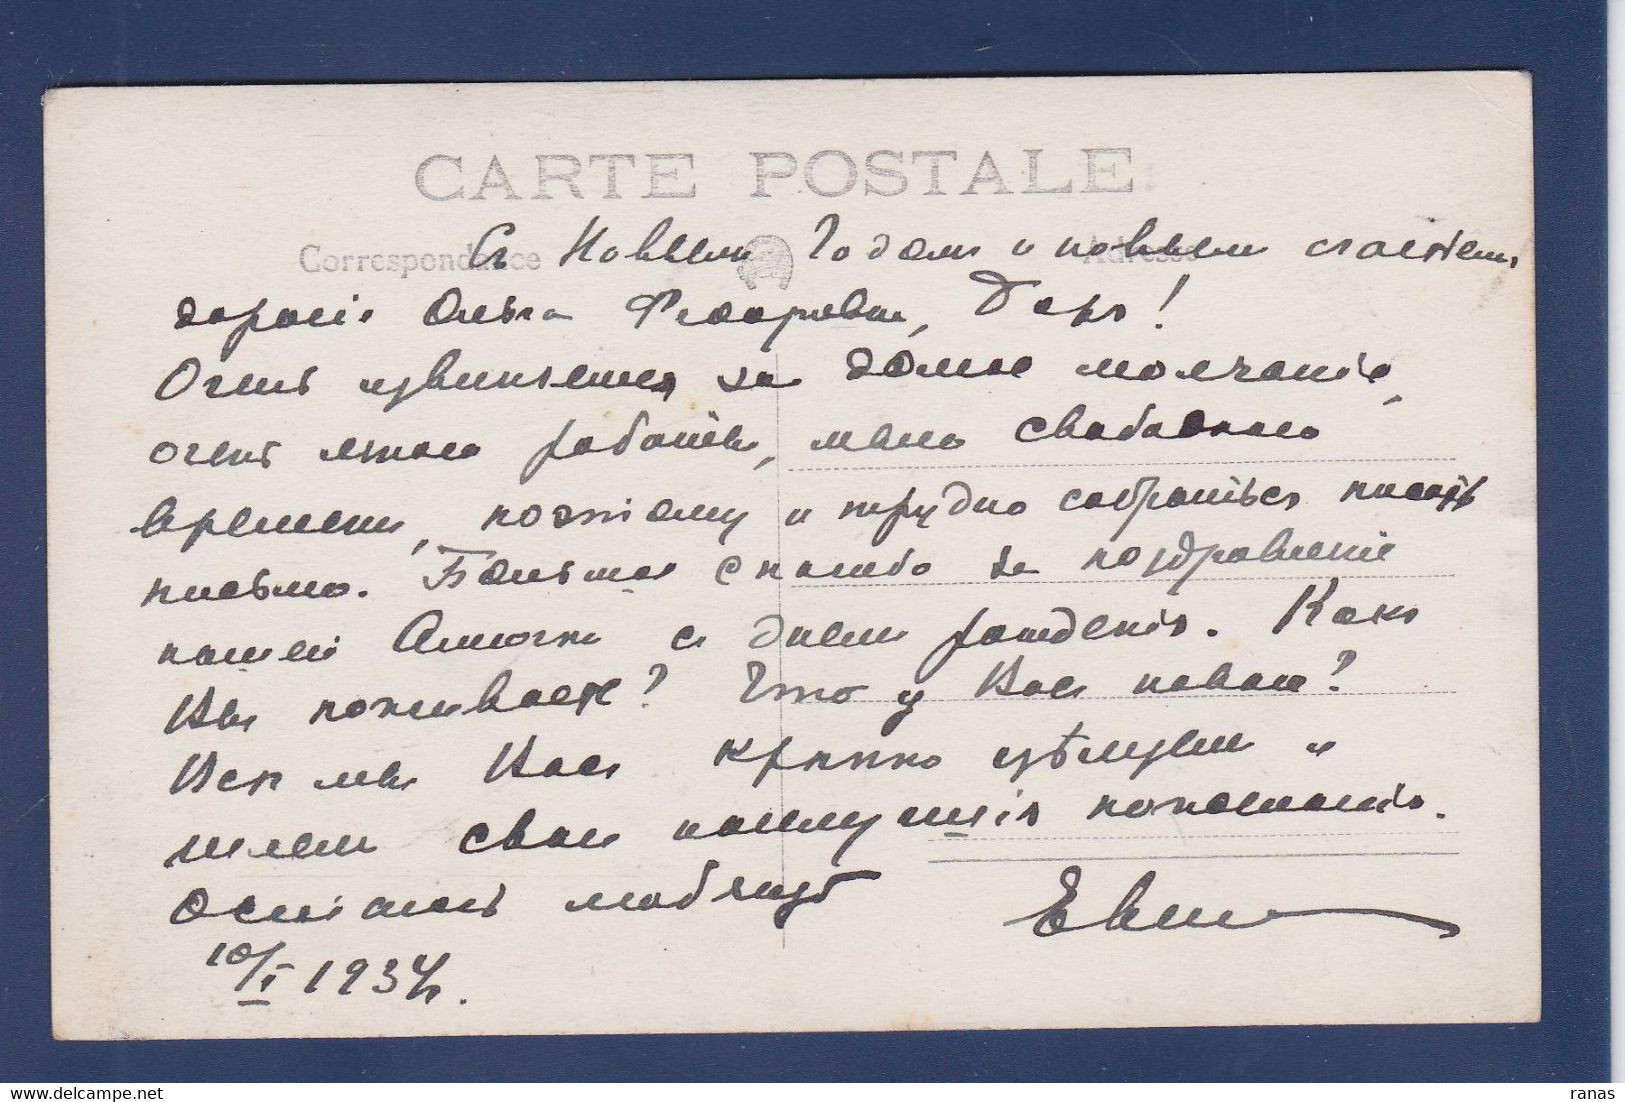 CARTE POSTALE
Correspondance Adresse
Съ Новымъ Годомъ и новымъ счастьемъ,
дорогія Ольга Федоровна,
Очень извиняемся за долгое молчаніе,
очень много работы, мало свободнаго
времени, поэтому и трудно собраться писать
письмо. Большое спасибо за поздравленіе
нашей с днемъ рожденія. Какъ
Вы поживаете? Что у Васъ новаго?
Всѣ мы Васъ крѣпко цѣлуемъ и
шлемъ свои наилучшія пожеланія.
Остаюсь любящій
10/I 1934г.
ranas